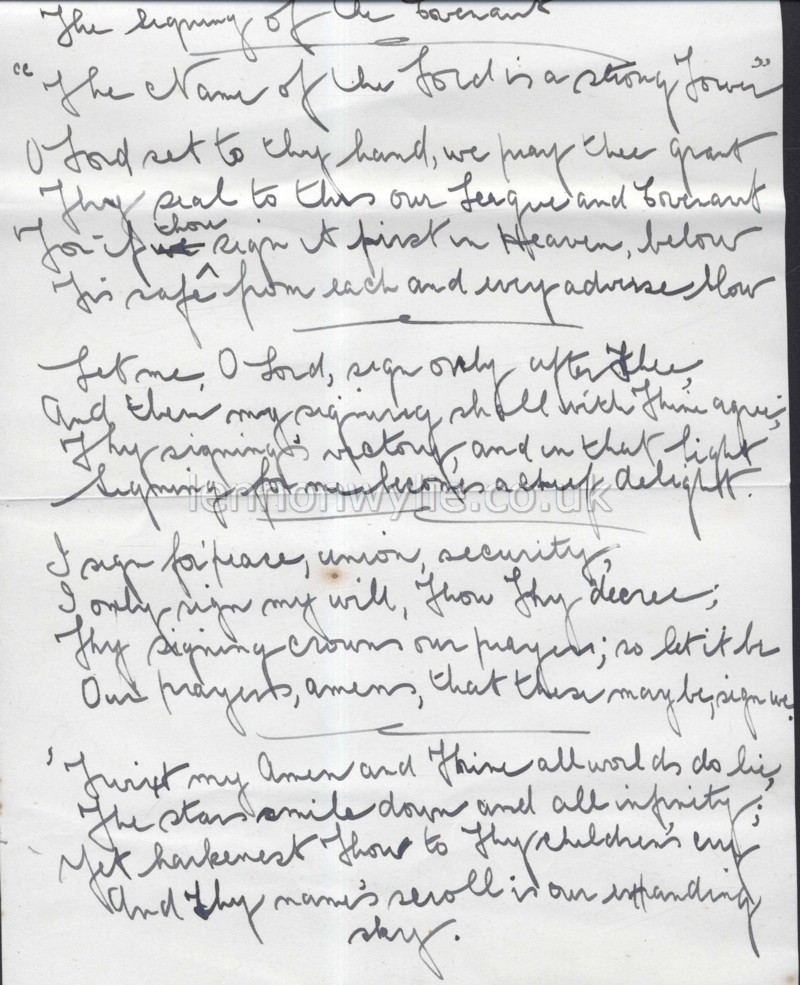 The Signing of the Covenant
"The Name of the Lord is a strong Tower"
O Lord set to thy hand, we pray thee grant
Thy seal to this our League and Covenant
For if thou sign it first in Heaven, below
'Tis safe from each and every adverse blow
Let me, O Lord, sign only after Thee,
And then my signing shall with Thine agree;
Thy signing's victory, and in that light
Signing for me becomes a chief delight.
lennonwylie.co.uk
I sign for peace, union, security,
I only sign my will, Thou Thy decree;
Thy signing crowns our prayers; so let it be
Our prayers, amens, that these may be, sign we.
'Twixt my Amen and Thine all worlds do lie,
The stars smile down and all infinity;
Yet harkenest Thou to Thy children's cry
And Thy name's scroll is our expanding
sky.